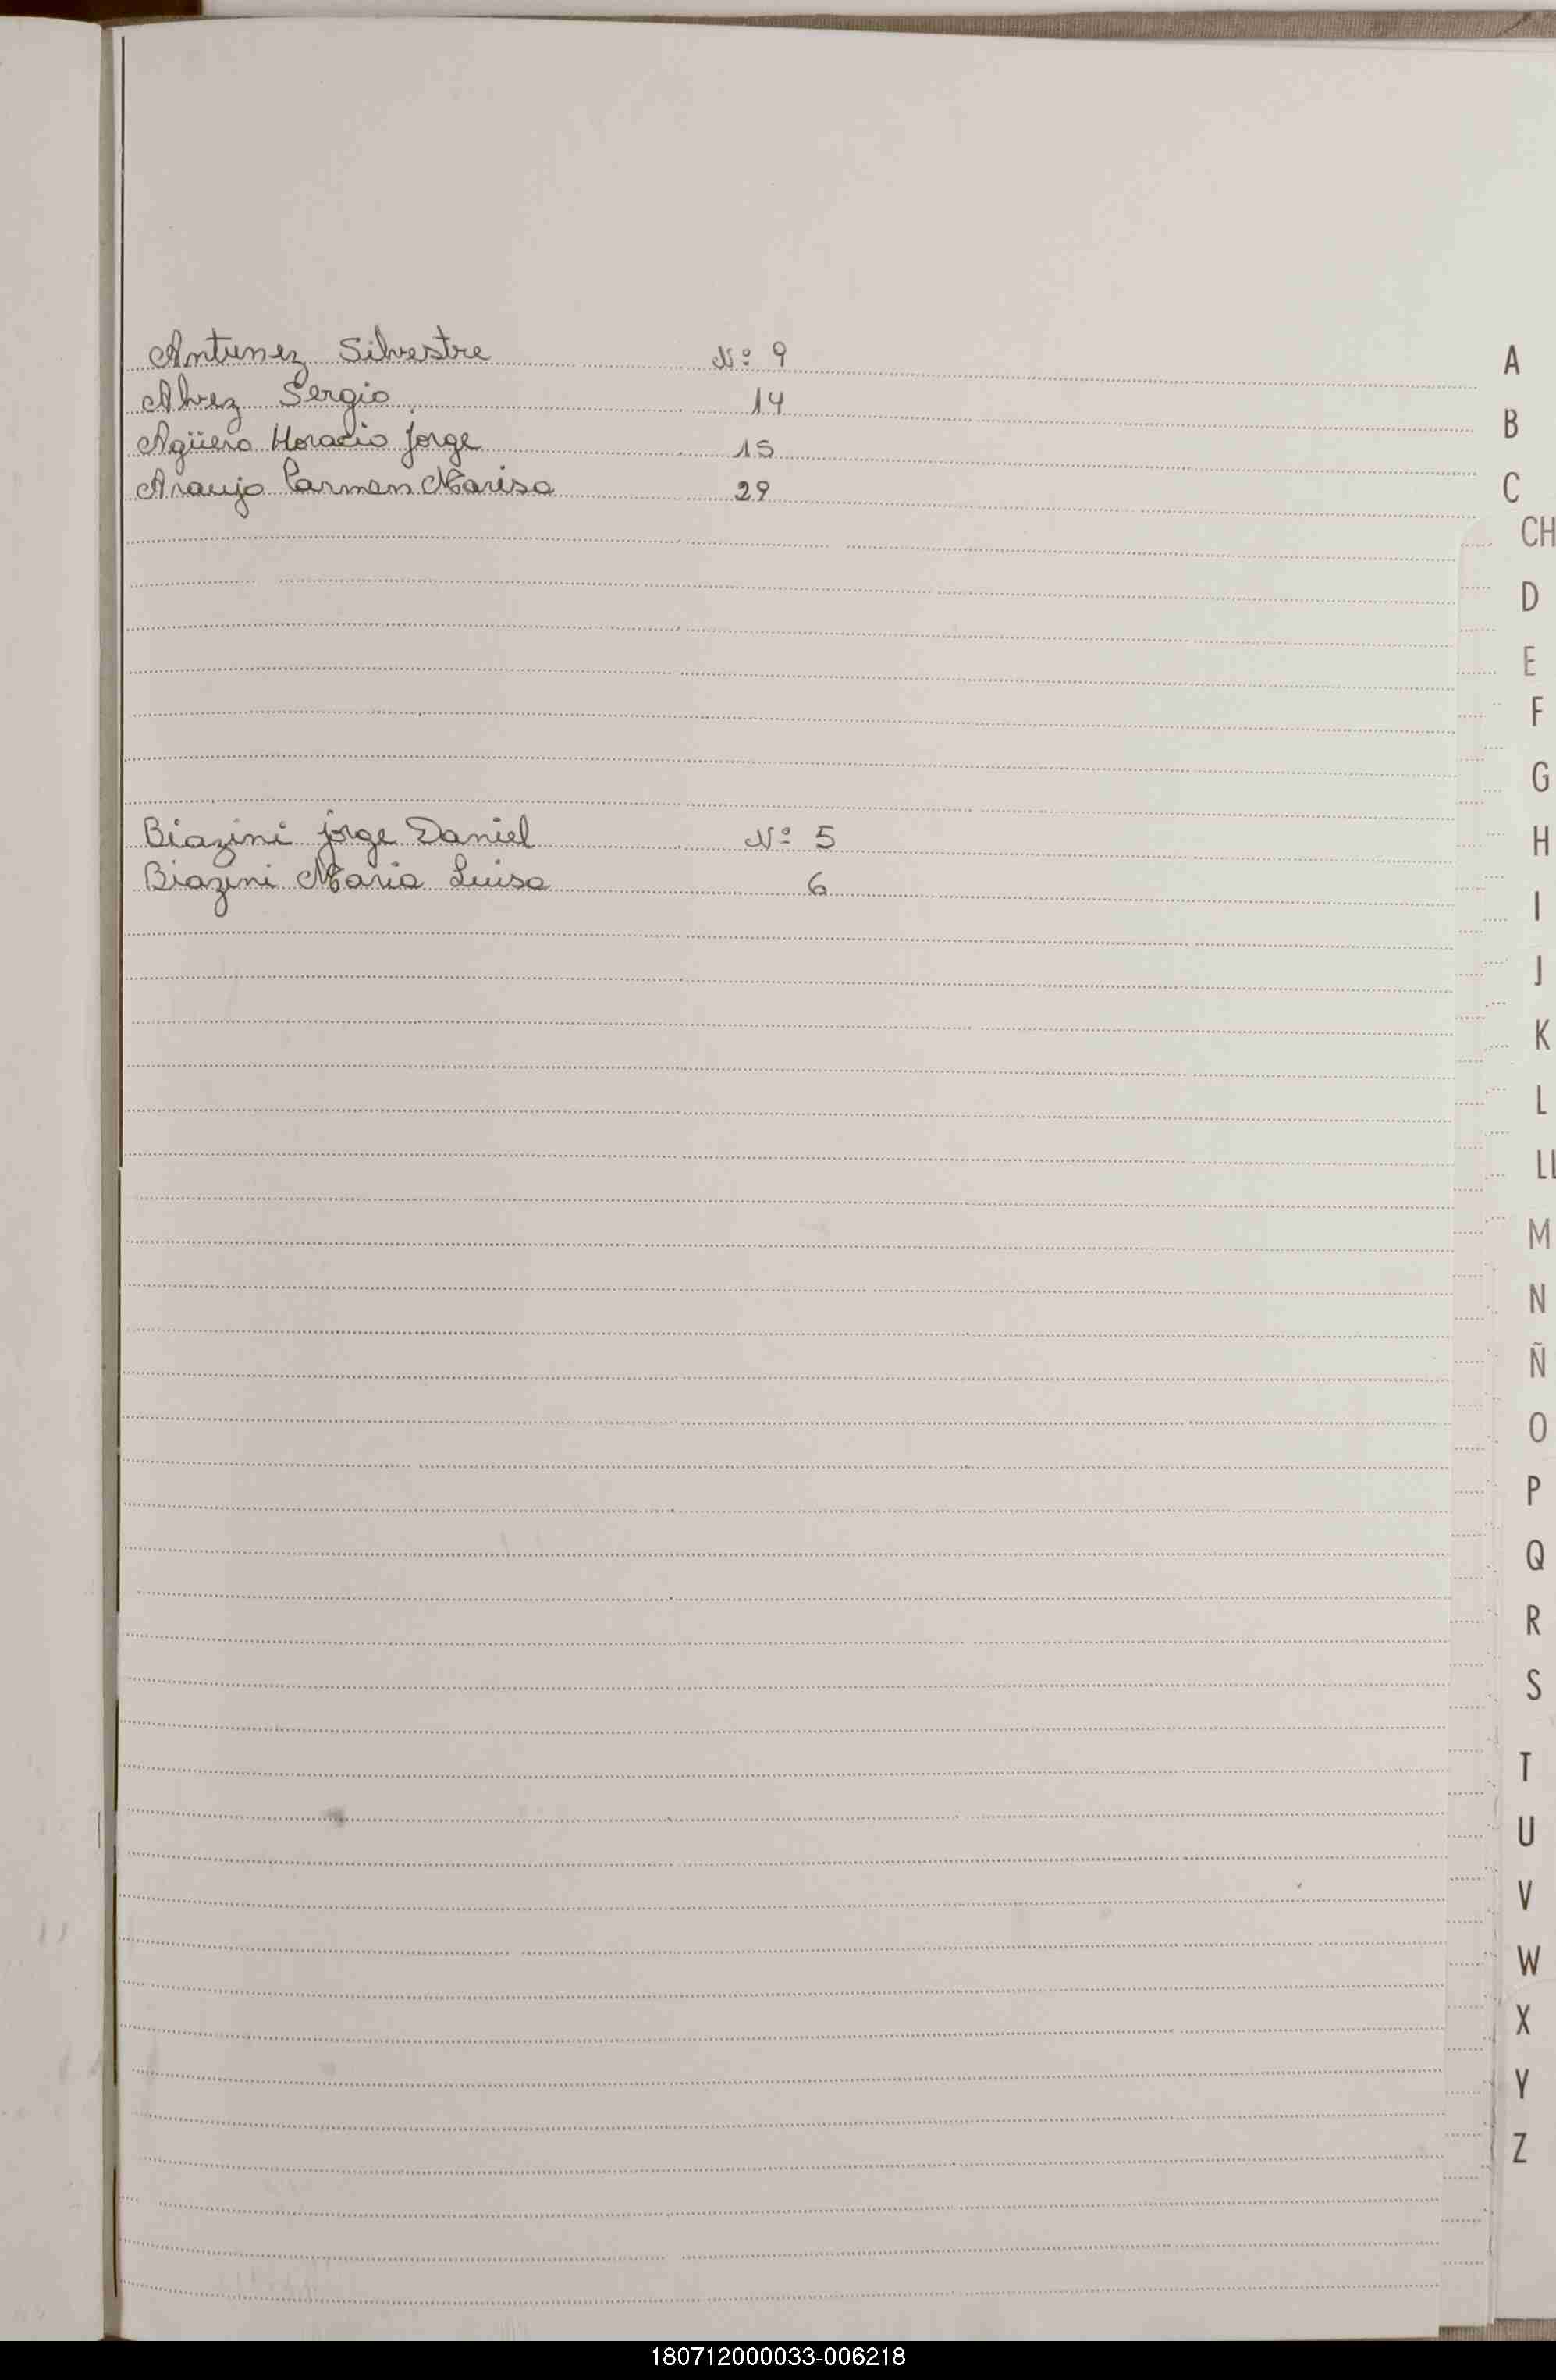 Antunez Silvestre Nº 9
Alvez Sergio 14
Agüero Horacio Jorge 15
Araujo Carmen Marisa 29
Biazini Jorge Daniel Nº 5
Biazini Maria Luisa 6
A
B
C
CH
D
E
F
G
H
I
J
K
L
LL
M
N
Ñ
O
P
Q
R
S
T
U
V
W
X
Y
Z
180712000033-006218